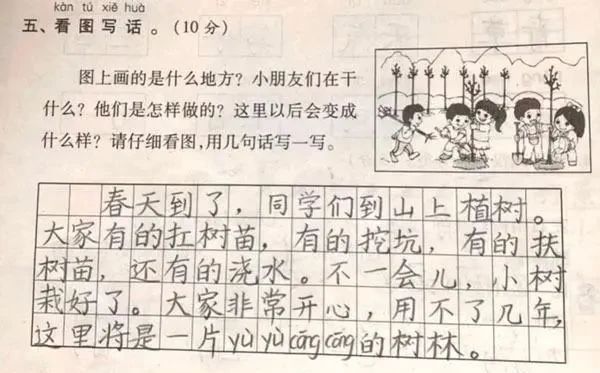 kàn tú xiě huà
五、看图写话。(10分)
图上画的是什么地方?小朋友们在干
什么?他们是怎样做的?这里以后会变成
什么样?请仔细看图,用几句话写一写。
春天到了,同学们到山上植树。
大家有的扛树苗,有的挖坑,有的扶
树苗,还有的浇水。不一会儿,小树
栽好了。大家非常开心,用不了几年,
这里将是一片yù yù cāng cāng的树林。